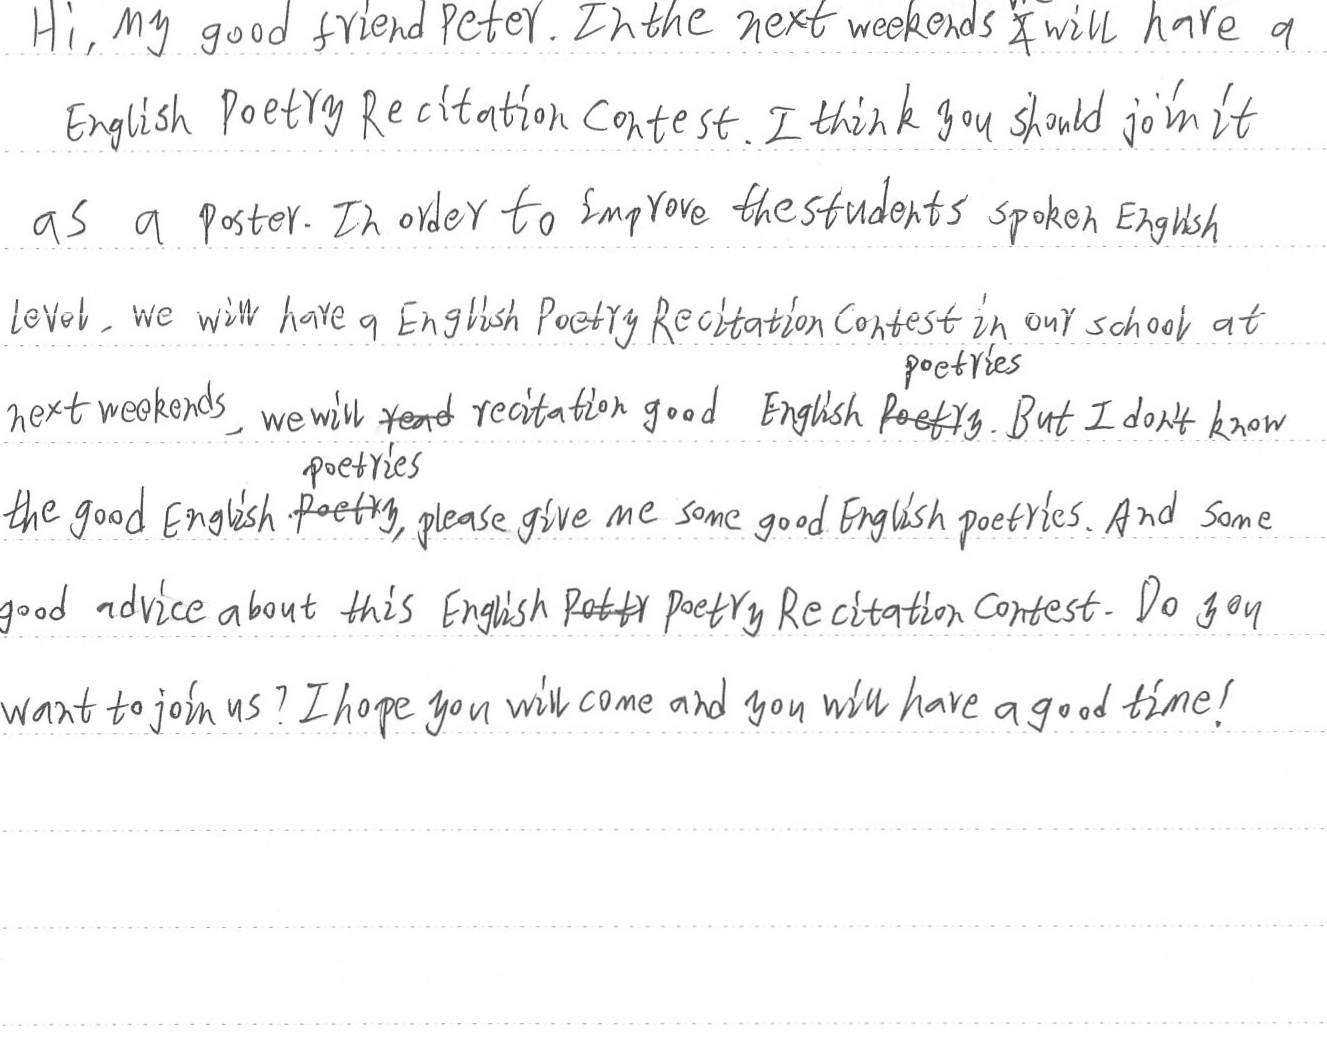 Hi, My good friend Peter. In the next weekends we will have a
English Poetry Recitation Contest. I think you should join it
as a poster. In order to improve the students spoken English
level, we will have a English Poetry Recitation Contest in our school at
poetries
next weekends, we will read recitation good English Poetry. But I don't know
poetries
the good English Poetry, please give me some good English poetries. And some
good advice about this English Pottr Poetry Recitation Contest. Do you
want to join us? I hope you will come and you will have a good time!